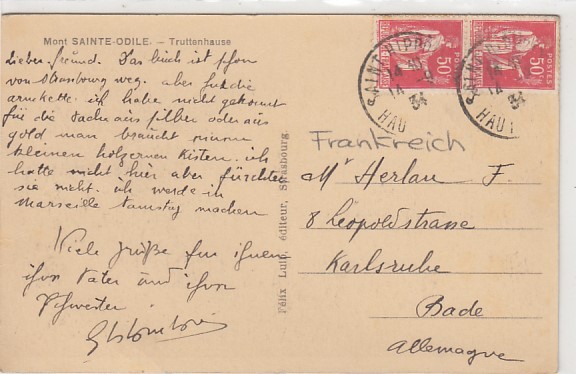 Mont SAINTE-ODILE. — Truttenhause
Lieber freund. Das buch ist schon
von Strasbourg weg. aber für die
armkette. ich habe nicht gekonnt
für die Sache aus silber oder aus
gold man braucht einen
kleinen holzernen Kisten. ich
hatte nicht hier aber fürchten
sie nicht. ich werde in
Marseille Samstag machen
Viele grüße für ihnen
ihre Vater und ihre
Schwester.
Félix Luib, éditeur, Strasbourg
POSTES
50c
POSTES
50c
SAINT-HIPPO
14
34
HAUT
SAINT
14
34
HAUT
Frankreich
Mr Herlan F.
8 Leopoldstrasse
Karlsruhe
Bade
Allemagne